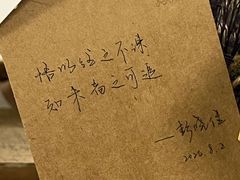 悟以往之不谏
知来者之可追
—彭晓佳
2026.8.2